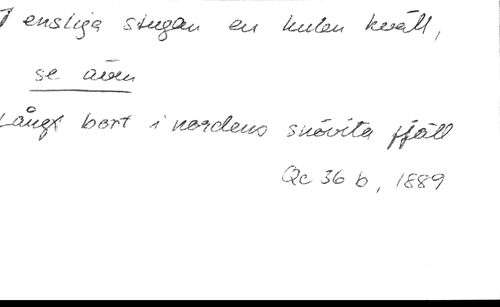 I ensliga stugan en kulen kväll,
se även
Långt bort i nordens snövita fjäll
Qc 36 b, 1889